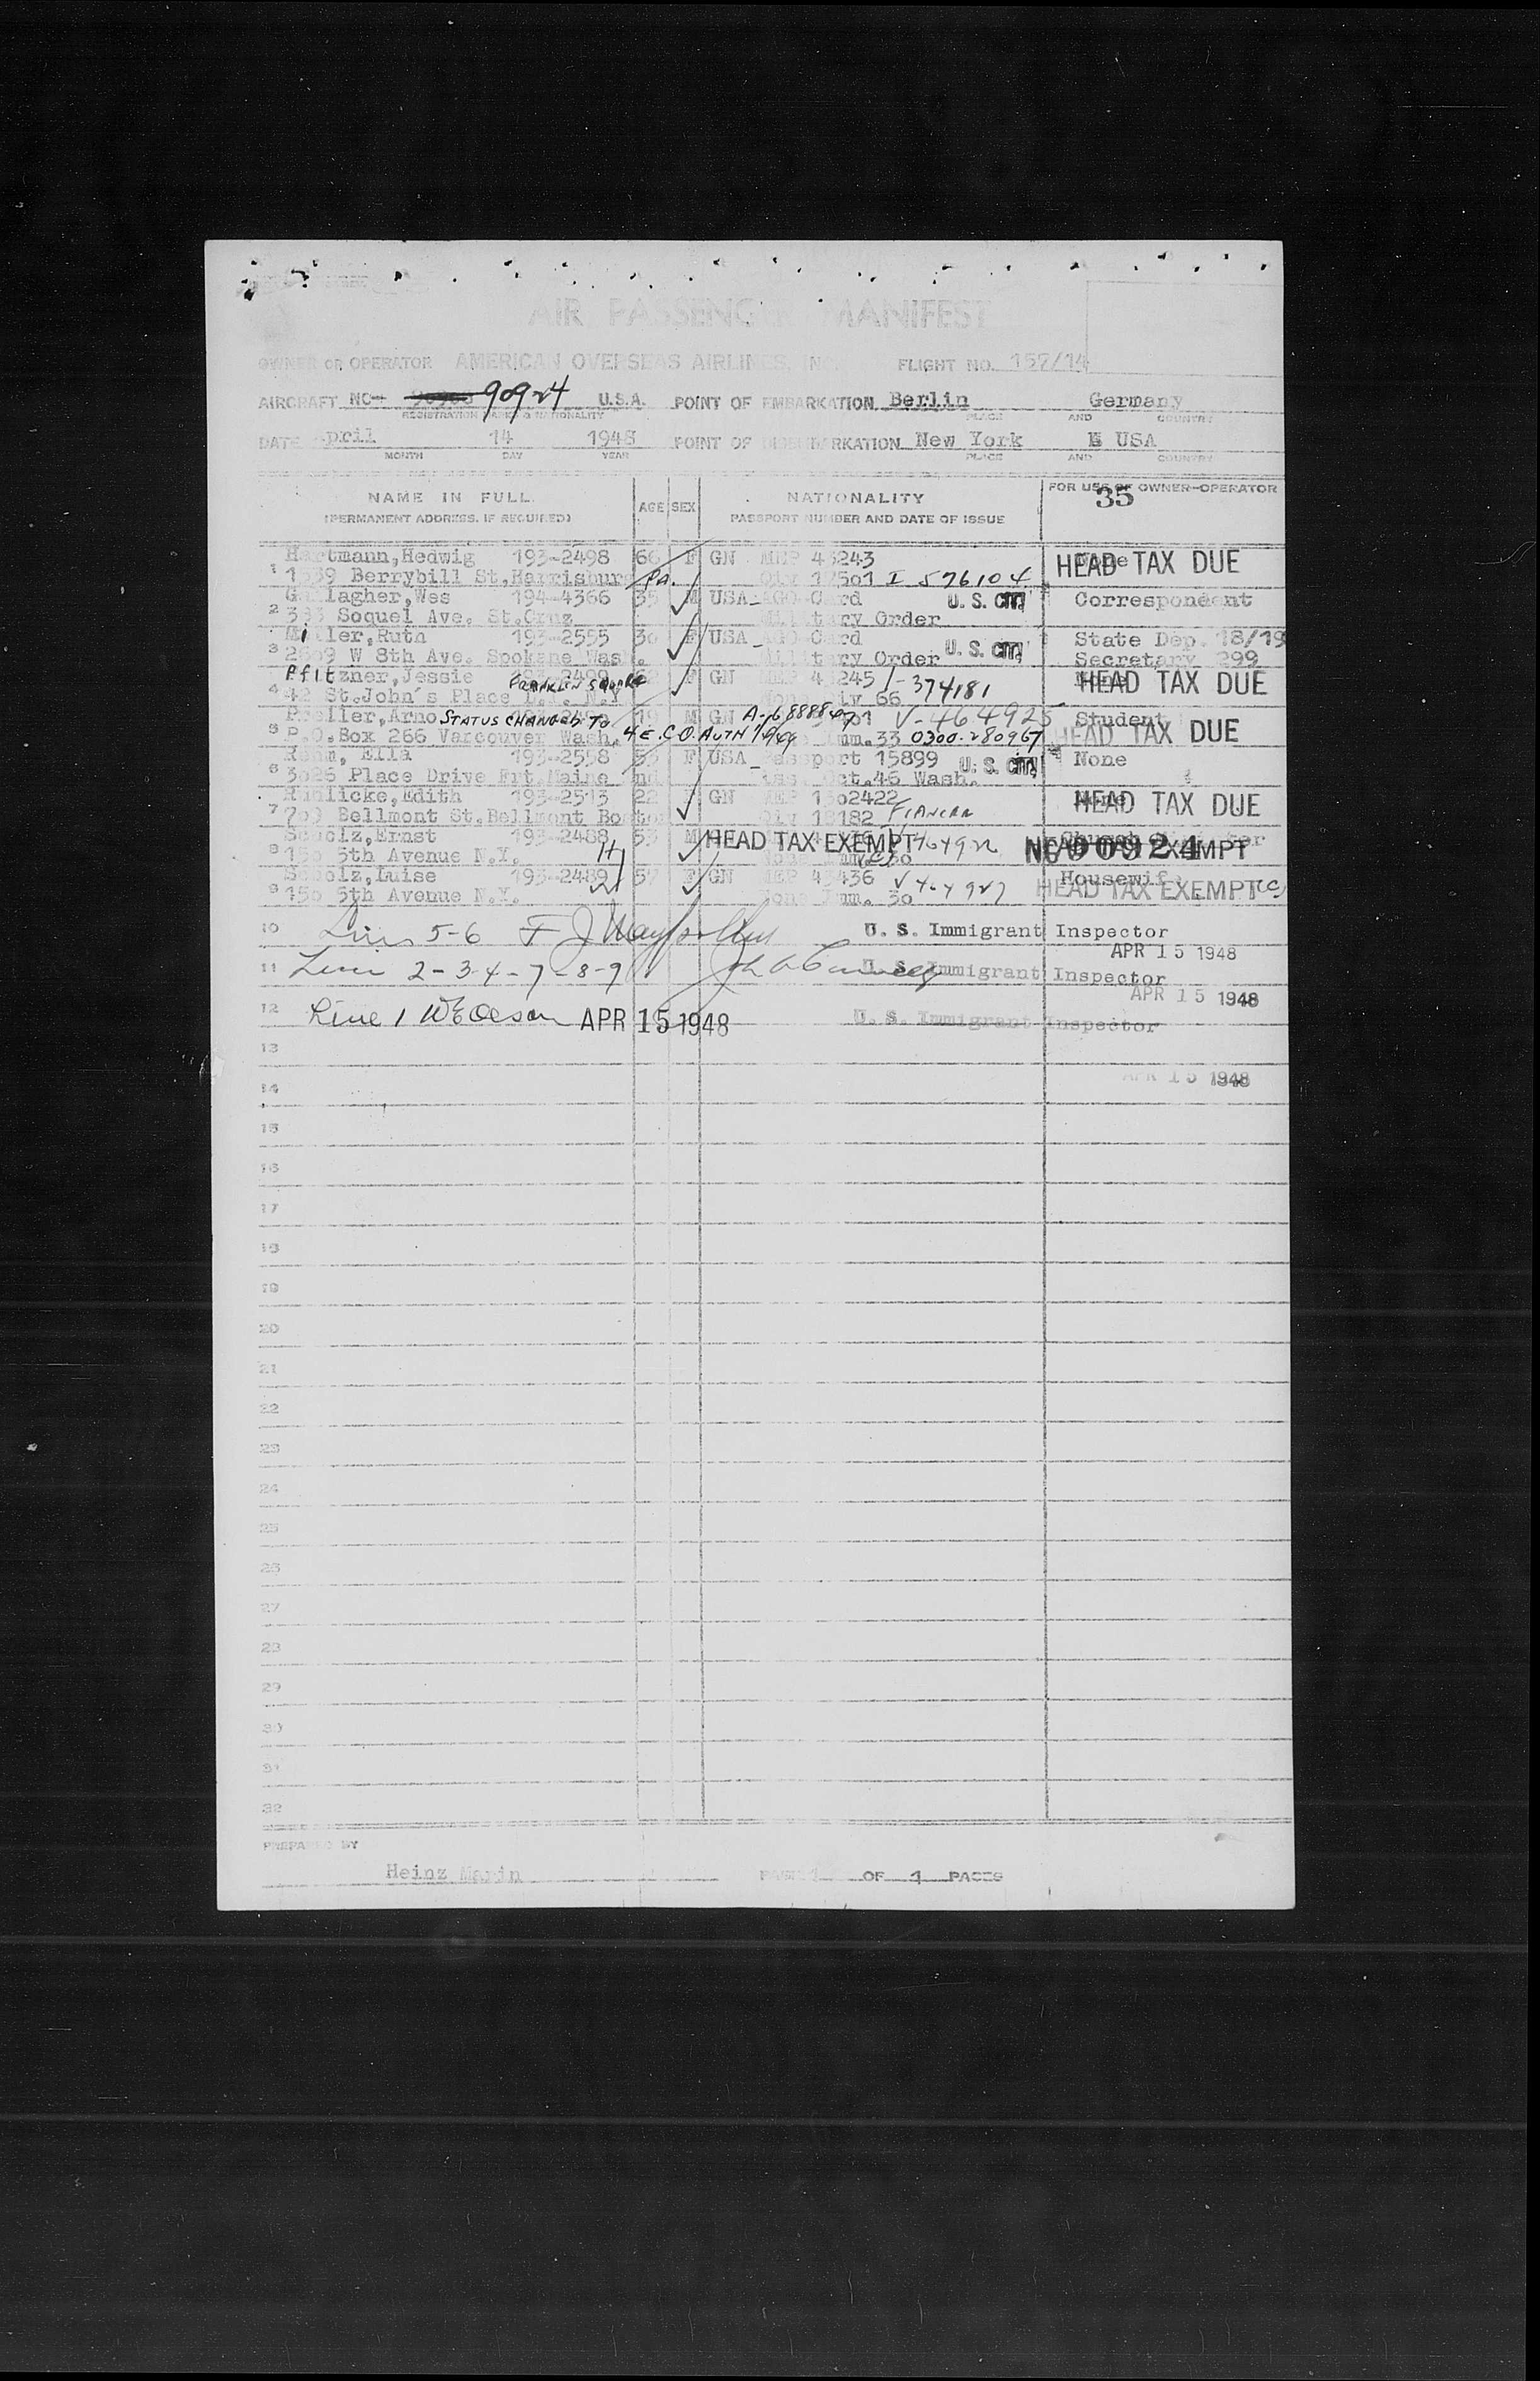 AIR PASSENGER MANIFEST
OWNER OR OPERATOR AMERICAN OVERSEAS AIRLINES, INC. FLIGHT NO. 152/14
AIRCRAFT NC- 90924 U.S.A. POINT OF EMBARKATION Berlin Germany
REGISTRATION MARKS & NATIONALITY PLACE AND COUNTRY
DATE April 14 1948 POINT OF DISEMBARKATION New York USA
MONTH DAY YEAR PLACE AND COUNTRY
NAME IN FULL AGE SEX NATIONALITY FOR USE OF OWNER-OPERATOR
(PERMANENT ADDRESS, IF REQUIRED) PASSPORT NUMBER AND DATE OF ISSUE 35
Hartmann,Hedwig 193-2498 66 F GN 43243 HEAD TAX DUE
1 Berrybill St,Harrisburg PA. I 576104
Gallagher,Wes 194-4366 35 M USA- AGO Card U.S. CIT. Correspondent
2 Soquel Ave. St.Cruz Military Order
Miller,Ruth 193-2555 30 F USA- AGO Card U.S. CIT. State Dep. 18/19
3 2609 W 8th Ave. Spokane Wash. Military Order Secretary 299
Pfitzner,Jessie 193-2499 62 F GN 43245 I-374181 HEAD TAX DUE
4 42 St.John's Place FRANKLIN SQUARE N.Y.
Arno STATUS CHANGED TO 19 M GN V-464925 Student
5 P.O.Box 266 Vancouver Wash. 4 E.C.O. AUTH 33 0300-280967 HEAD TAX DUE
Ella 193-2558 55 F USA- Passport 15899 U.S. CIT. None
6 3026 Place Drive Frt.Maine Ind. Oct.46 Wash.
Edith 193-2513 22 F GN 1302422 HEAD TAX DUE
7 Bellmont St.Bellmont Boston 18182 FIANCEE
Scholz,Ernst 193-2488 53 M HEAD TAX EXEMPT
8 150 5th Avenue N.Y. NC 90924 HEAD TAX EXEMPT
Scholz,Luise 193-2489 57 F GN 43436 Housewife
9 150 5th Avenue N.Y. None Imm. 30 HEAD TAX EXEMPT
10 Lines 5-6 U. S. Immigrant Inspector
APR 15 1948
11 Line 2-3-4-7-8-9 U. S. Immigrant Inspector
APR 15 1948
12 Line 1 APR 15 1948 U. S. Immigrant Inspector
13
APR 15 1948
14
15
16
17
18
19
20
21
22
23
24
25
26
27
28
29
30
31
32
PREPARED BY
Heinz Marin PAGE 1 OF 1 PAGES